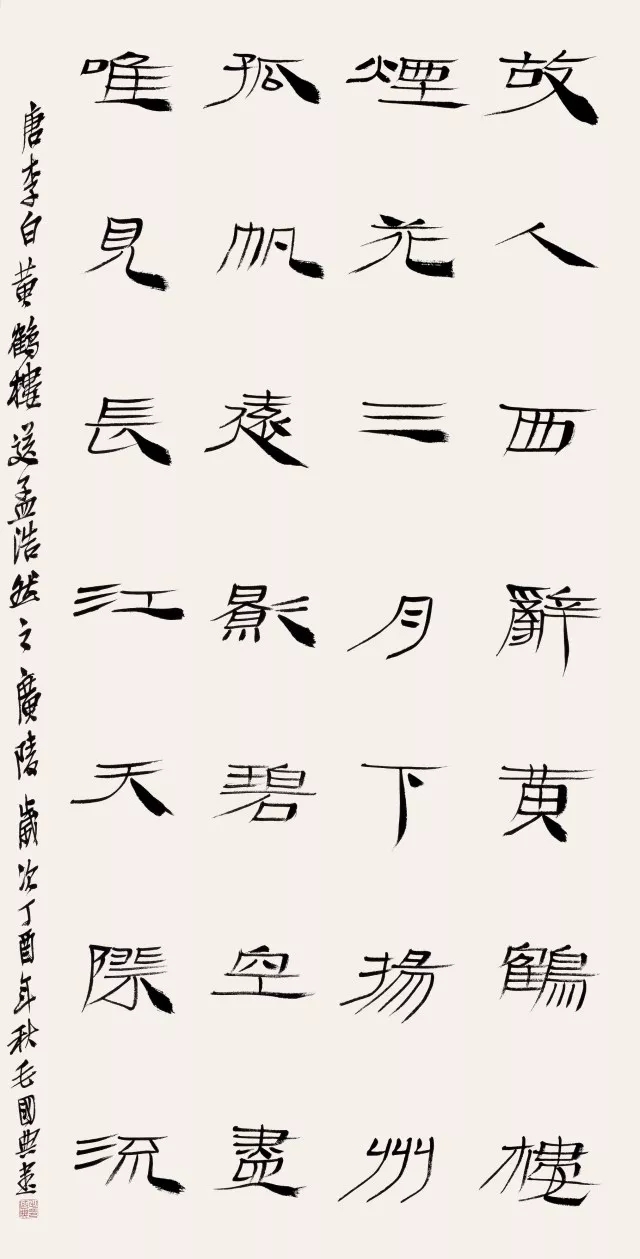 故人西辭黄鶴樓
煙花三月下揚州
孤帆遠影碧空盡
唯見長江天際流
唐李白黄鶴樓送孟浩然之廣陵歲次丁酉年秋毛國典書